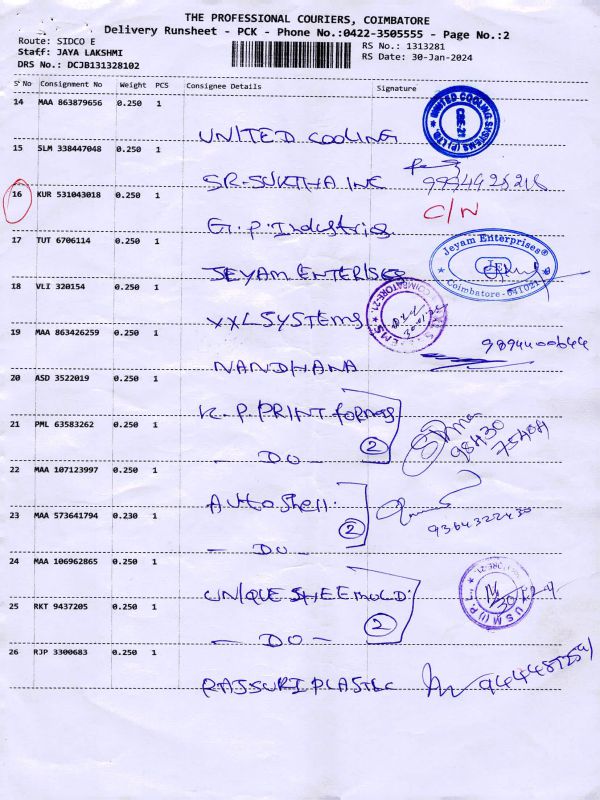 THE PROFESSIONAL COURIERS, COIMBATORE
Delivery Runsheet - PCK - Phone No.:0422-3505555 - Page No.:2
Route: SIDCO E
Staff: JAYA LAKSHMI
DRS No.: DCJB131328102
RS No.: 1313281
RS Date: 30-Jan-2024
S' No Consignment No Weight PCS Consignee Details Signature
14 MAA 863879656 0.250 1
UNITED COOLING
UNITED COOLING SYSTEMS (P) LTD.
CBE-21
15 SLM 338447048 0.250 1
SR-SUKTHA INC
16 KUR 531043018 0.250 1
C/N
G.P. Industries
17 TUT 6706114 0.250 1
JEYAM ENTERISES
Jeyam Enterprises®
JE
Coimbatore - 641021
18 VLI 320154 0.250 1
XXL SYSTEMS
COIMBATORE-21.
19 MAA 863426259 0.250 1
9894400644
NANDHANA
20 ASD 3522019 0.250 1
K.P. PRINT forms
21 PML 63583262 0.250 1
2
98430
75404
- DO -
22 MAA 107123997 0.250 1
Auto shell.
23 MAA 573641794 0.230 1
2
9364322430
- DO -
24 MAA 106962865 0.250 1
UNIQUE SHEEMOLD.
25 RKT 9437205 0.250 1
2
- DO -
26 RJP 3300683 0.250 1
RAJSURI PLASTEC